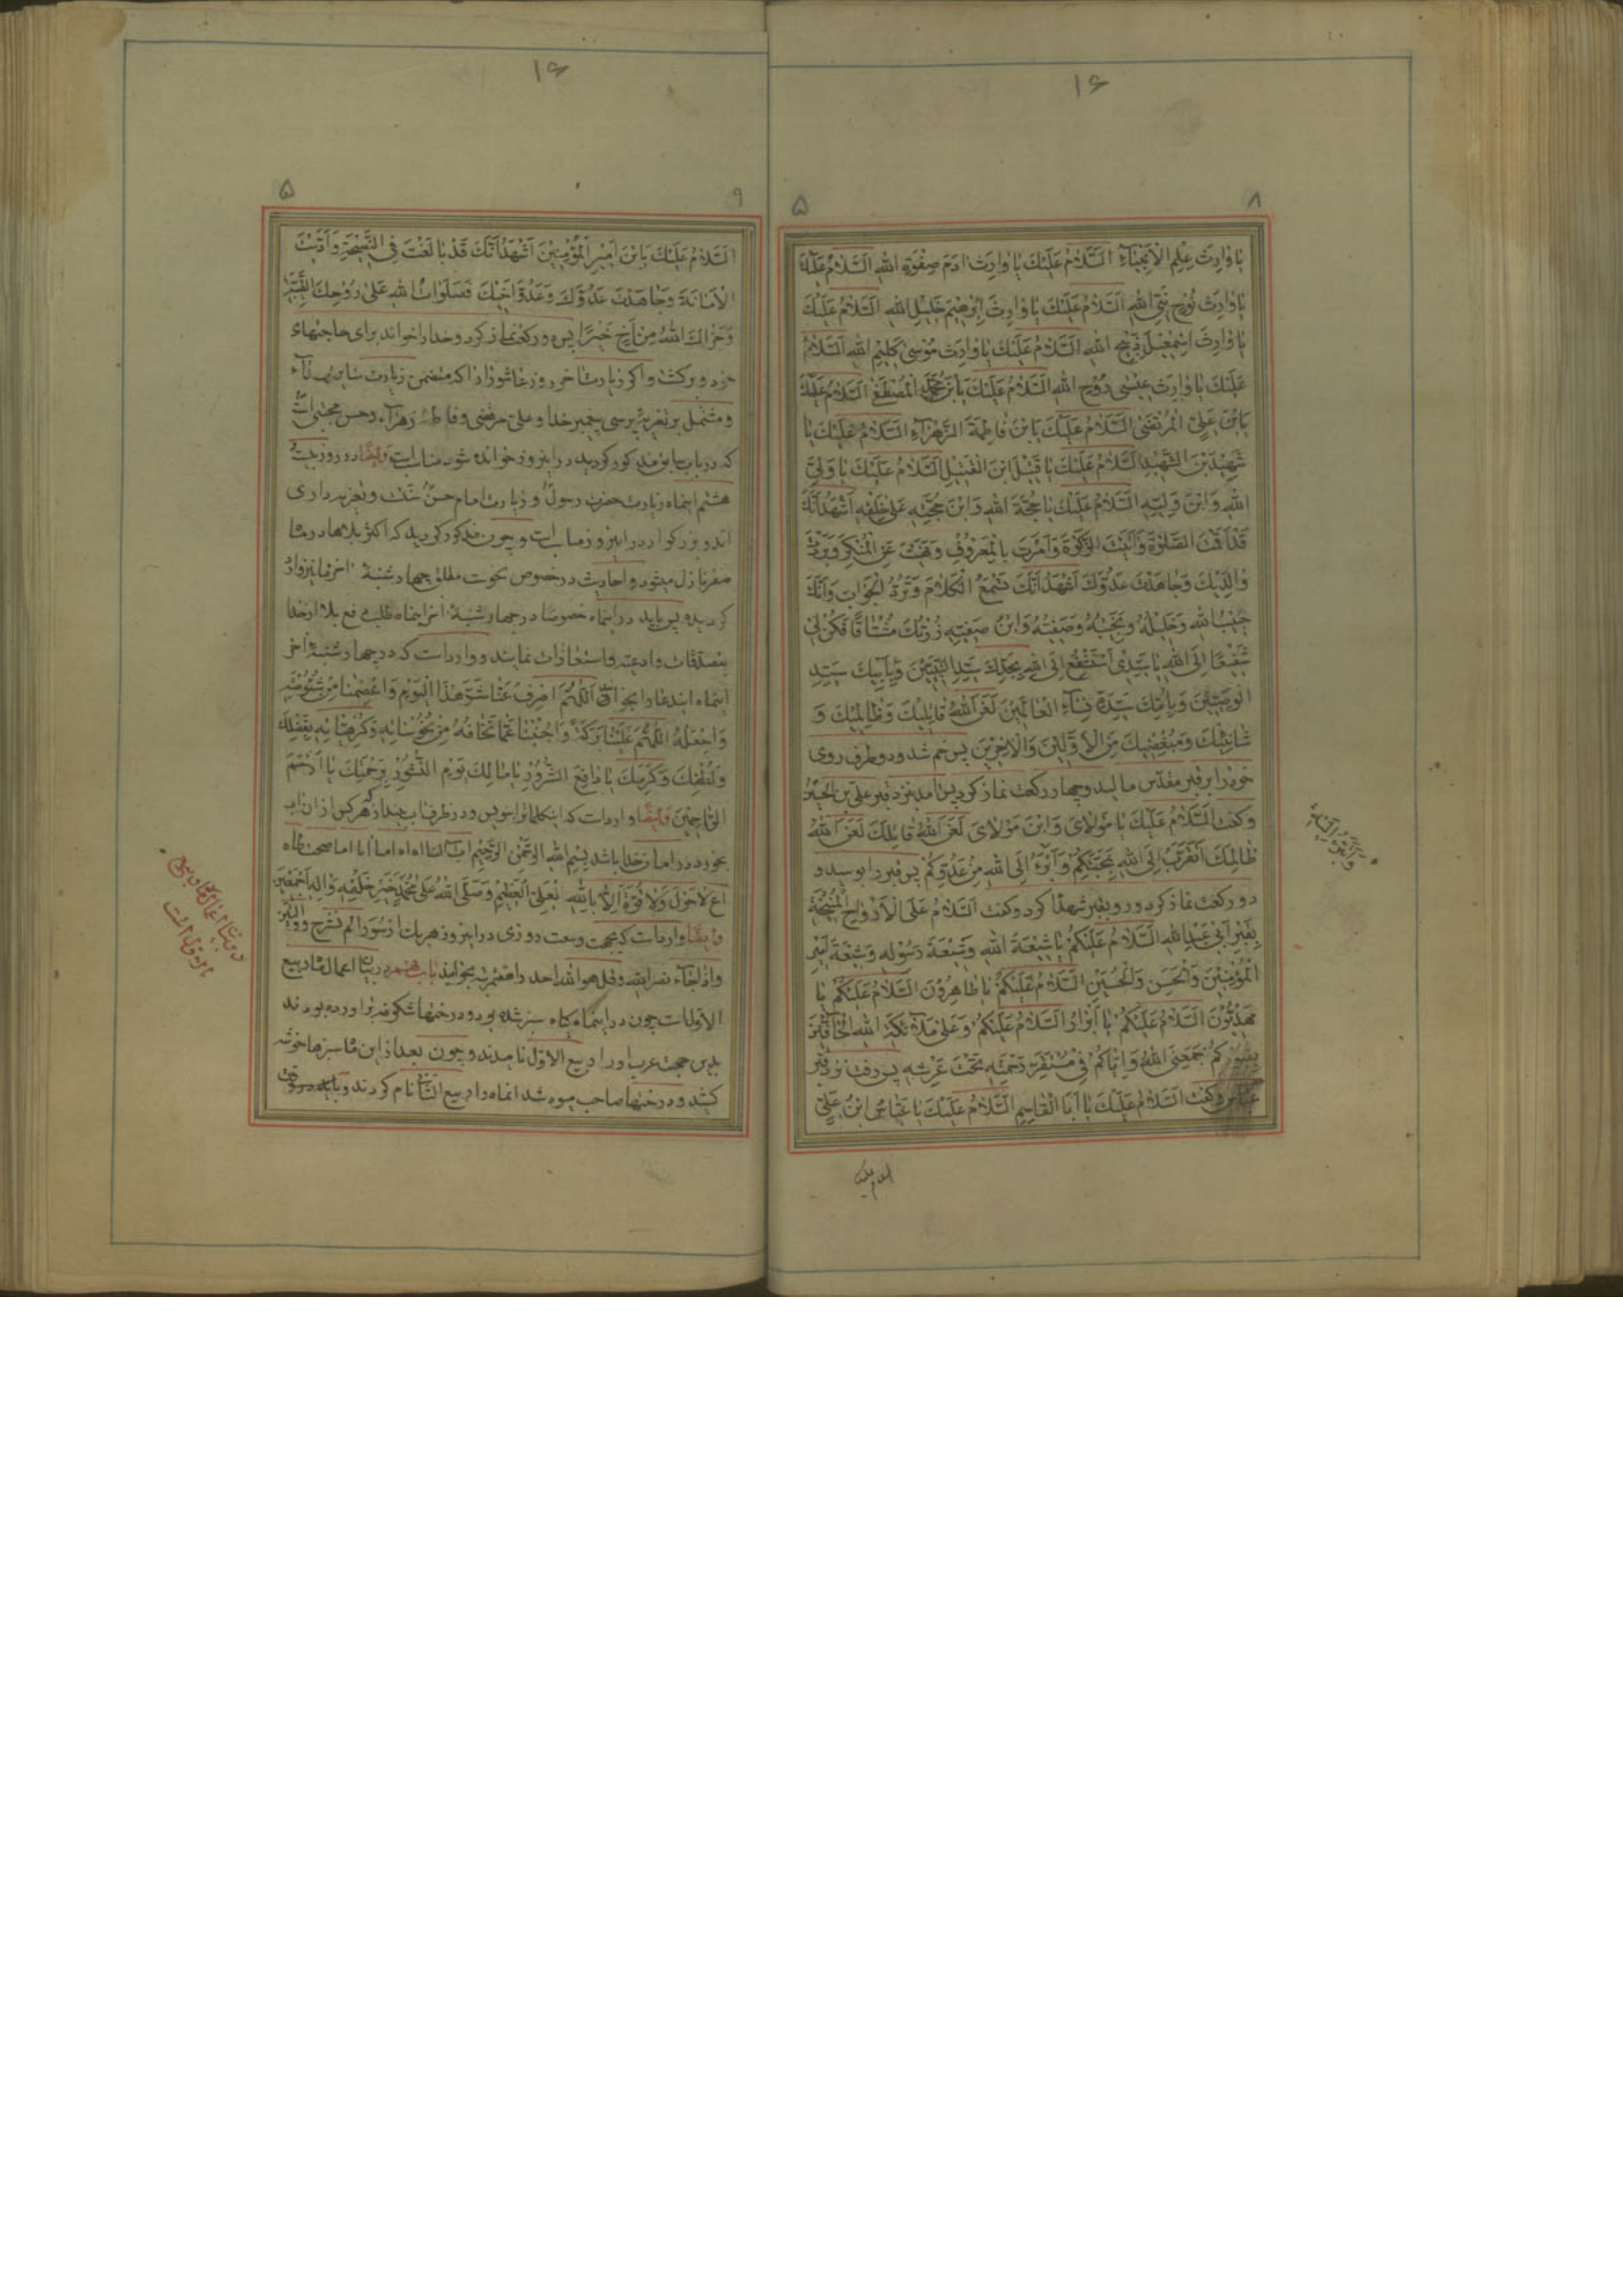 ۱۶
۸
۵
یا وارِثَ عِلْمِ الْاَنْبِیاءِ اَلسَّلامُ عَلَیْکَ یا وارِثَ ادَمَ صِفْوَةِ اللهِ اَلسَّلامُ عَلَیْکَ
یا وارِثَ نُوحٍ نَبِیِّ اللهِ اَلسَّلامُ عَلَیْکَ یا وارِثَ اِبْرهیمَ خَلیلِ اللهِ اَلسَّلامُ عَلَیْکَ
یا وارِثَ اِسْمعیلَ ذَبیحِ اللهِ اَلسَّلامُ عَلَیْکَ یا وارِثَ مُوسی کَلیمِ اللهِ اَلسَّلامُ
عَلَیْکَ یا وارِثَ عیسی رُوحِ اللهِ اَلسَّلامُ عَلَیْکَ یَابْنَ مُحَمَّدٍ الْمُصْطَفی اَلسَّلامُ عَلَیْکَ
یَابْنَ عَلِیٍّ الْمُرْتَضی اَلسَّلامُ عَلَیْکَ یَابْنَ فاطِمَةَ الزَّهْراءِ اَلسَّلامُ عَلَیْکَ یا
شَهیدَ بْنَ الشَّهیدِ اَلسَّلامُ عَلَیْکَ یا قَتیلَ ابْنَ الْقَتیلِ اَلسَّلامُ عَلَیْکَ یا وَلِیَّ
اللهِ وَ ابْنَ وَلِیِّهِ اَلسَّلامُ عَلَیْکَ یا حُجَّةَ اللهِ وَ ابْنَ حُجَّتِهِ عَلی خَلْقِهِ اَشْهَدُ اَنَّکَ
قَدْ اَقَمْتَ الصَّلوةَ وَ اتَیْتَ الزَّکوةَ وَ اَمَرْتَ بِالْمَعْرُوفِ وَ نَهَیْتَ عَنِ الْمُنْکَرِ وَ بَرَرْتَ
والِدَیْکَ وَ جاهَدْتَ عَدُوَّکَ اَشْهَدُ اَنَّکَ تَسْمَعُ الْکَلامَ وَ تَرُدُّ الْجَوابَ وَ اَنَّکَ
حَبیبُ اللهِ وَ خَلیلُهُ وَ نَجیبُهُ وَ صَفِیُّهُ وَ ابْنُ صَفِیِّهِ زُرْتُکَ مُشْتاقًا فَکُنْ لی
شَفیعًا اِلَی اللهِ یا سَیِّدی اَسْتَشْفِعُ اِلَی اللهِ بِجَدِّکَ سَیِّدِ النَّبِیّینَ وَ بِاَبیکَ سَیِّدِ
الْوَصِیّینَ وَ بِاُمِّکَ سَیِّدَةِ نِساءِ الْعالَمینَ لَعَنَ اللهُ قاتِلیکَ وَ ظالِمیکَ وَ
شانِئیکَ وَ مُبْغِضیکَ مِنَ الْاَوَّلینَ وَ الْاخِرینَ پس خم شد و دو طرف روی
خود را بر قبر مقدس مالید و چهار رکعت نماز کرد پس آمد نزد قبر علی بن الحسین
و گفت اَلسَّلامُ عَلَیْکَ یا مَوْلایَ وَ ابْنَ مَوْلایَ لَعَنَ اللهُ قاتِلَکَ لَعَنَ اللهُ
ظالِمَکَ اَتَقَرَّبُ اِلَی اللهِ بِمَحَبَّتِکُمْ وَ اَبْرَءُ اِلَی اللهِ مِنْ عَدُوِّکُمْ پس قبر را بوسید و
دو رکعت نماز کرد و رو بقبر شهدا کرد و گفت اَلسَّلامُ عَلَی الْاَرْواحِ الْمُنیخَةِ
بِقَبْرِ اَبی عَبْدِ اللهِ اَلسَّلامُ عَلَیْکُمْ یا شیعَةَ اللهِ وَ شیعَةَ رَسُولِهِ وَ شیعَةَ اَمیرِ
الْمُؤْمِنینَ وَ الْحَسَنِ وَ الْحُسَیْنِ اَلسَّلامُ عَلَیْکُمْ یا طاهِرُونَ اَلسَّلامُ عَلَیْکُمْ یا
مَهْدِیُّونَ اَلسَّلامُ عَلَیْکُمْ یا اَبْرارُ اَلسَّلامُ عَلَیْکُمْ وَ عَلی مَلائِکَةِ اللهِ الْحافّینَ
بِقُبُورِکُمْ جَمَعَنِیَ اللهُ وَ اِیّاکُمْ فی مُسْتَقَرِّ رَحْمَتِهِ تَحْتَ عَرْشِهِ پس رفت نزد قبر
عباس و گفت اَلسَّلامُ عَلَیْکَ یا اَبَا الْقاسِمِ اَلسَّلامُ عَلَیْکَ یا عَبّاسَ ابْنَ عَلِیٍّ
السلام علیک
۱۶
۹
۵
اَلسَّلامُ عَلَیْکَ یَابْنَ اَمیرِ الْمُؤْمِنینَ اَشْهَدُ اَنَّکَ قَدْ بالَغْتَ فِی النَّصیحَةِ وَ اَدَّیْتَ
الْاَمانَةَ وَ جاهَدْتَ عَدُوَّکَ وَ عَدُوَّ اَخیکَ فَصَلَواتُ اللهِ عَلی رُوحِکَ الطَّیِّبَةِ
وَ جَزاکَ اللهُ مِنْ اَخٍ خَیْرًا پس دو رکعت نماز کرد و خدا را خواند برای حاجتهای
خود و برگشت و اگر زیارت آخر روز عاشورا را که متضمن زیارت سایر شهداء
و مشتمل بر تعزیه پرسی پیغمبر خدا و علی مرتضی و فاطمه زهراء و حسن مجتبی است
که در باب سابق مذکور گردید در این روز خوانده شود مناسب است وایضًا در روز بیست و
هشتم اینماه زیارت حضرت رسول و زیارت امام حسن سنت و تعزیه داری
آندو بزرگوار در این روز مناسب است و چون مذکور گردید که اکثر بلاها در ماه
صفر نازل میشود و احادیث در خصوص نحوست مطلق چهارشنبه آخر ماه نیز وارد
گردیده پس باید در اینماه خصوصًا در چهارشنبه آخر اینماه طلب دفع بلا از خدا
بتصدقات و ادعیه و استعاذات نمایند و وارد است که در چهارشنبه آخر
اینماه ایندعا را بخوان اَللّهُمَّ اصْرِفْ عَنّا شَرَّ هذَا الْیَوْمِ وَ اعْصِمْنا مِنْ شُؤْمِهِ
وَ اجْعَلْهُ اللّهُمَّ عَلَیْنا بَرَکَةً وَ اجْنُبْنا عَمّا نَخافُهُ مِنْ نُحُوساتِهِ وَ کُرُهاتِهِ بِفَضْلِکَ
وَ لُطْفِکَ وَ کَرَمِکَ یا دافِعَ الشُّرُورِ یا مالِکَ یَوْمِ النُّشُورِ بِرَحْمَتِکَ یا اَرْحَمَ
الرّاحِمینَ وایضًا وارد است که اینکلمات را بنویس و در ظرف آب بینداز که هر کس از آن آب
بخورد در امان خدا باشد بِسْمِ اللهِ الرَّحْمنِ الرَّحیمِ
لا حَوْلَ وَ لا قُوَّةَ اِلّا بِاللهِ الْعَلِیِّ الْعَظیمِ وَ صَلَّی اللهُ عَلی مُحَمَّدٍ خَیْرِ خَلْقِهِ وَ الِهِ اَجْمَعینَ
وایضًا وارد است که بجهت وسعت روزی در این روز هر یک از سُوَر الم نشرح و والتین
و اذا جاء نصر الله و قل هو الله احد را هفتمرتبه بخوانید باب هفتم در بیان اعمال ماه ربیع
الاول است چون در اینماه گیاه سبز شده بود و درختها شکوفه برآورده بودند
بدین جهت عرب او را ربیع الاول نامیدند و چون بعد از این ماه سبزها خوشه
کشید و درختها صاحب میوه شد آنماه را ربیع الثانی نام کردند و
در بیان اعمال ماه ربیع
الاول است